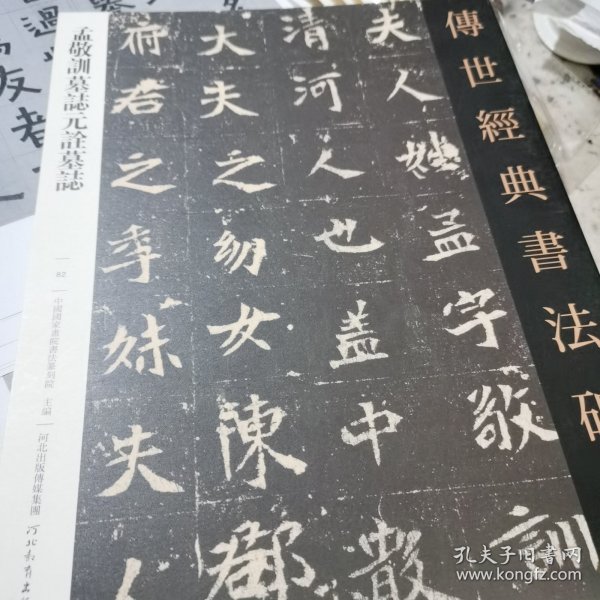 傳世經典書法碑
孟敬訓墓誌 元詮墓誌
82
中國國家畫院書法篆刻院 主編
河北出版傳媒集團
河北教育出
夫人姓孟字敬訓
清河人也蓋中散
大夫之幼女陳郡
府君之季妹夫人
孔夫子旧书网
www.kongfz.com